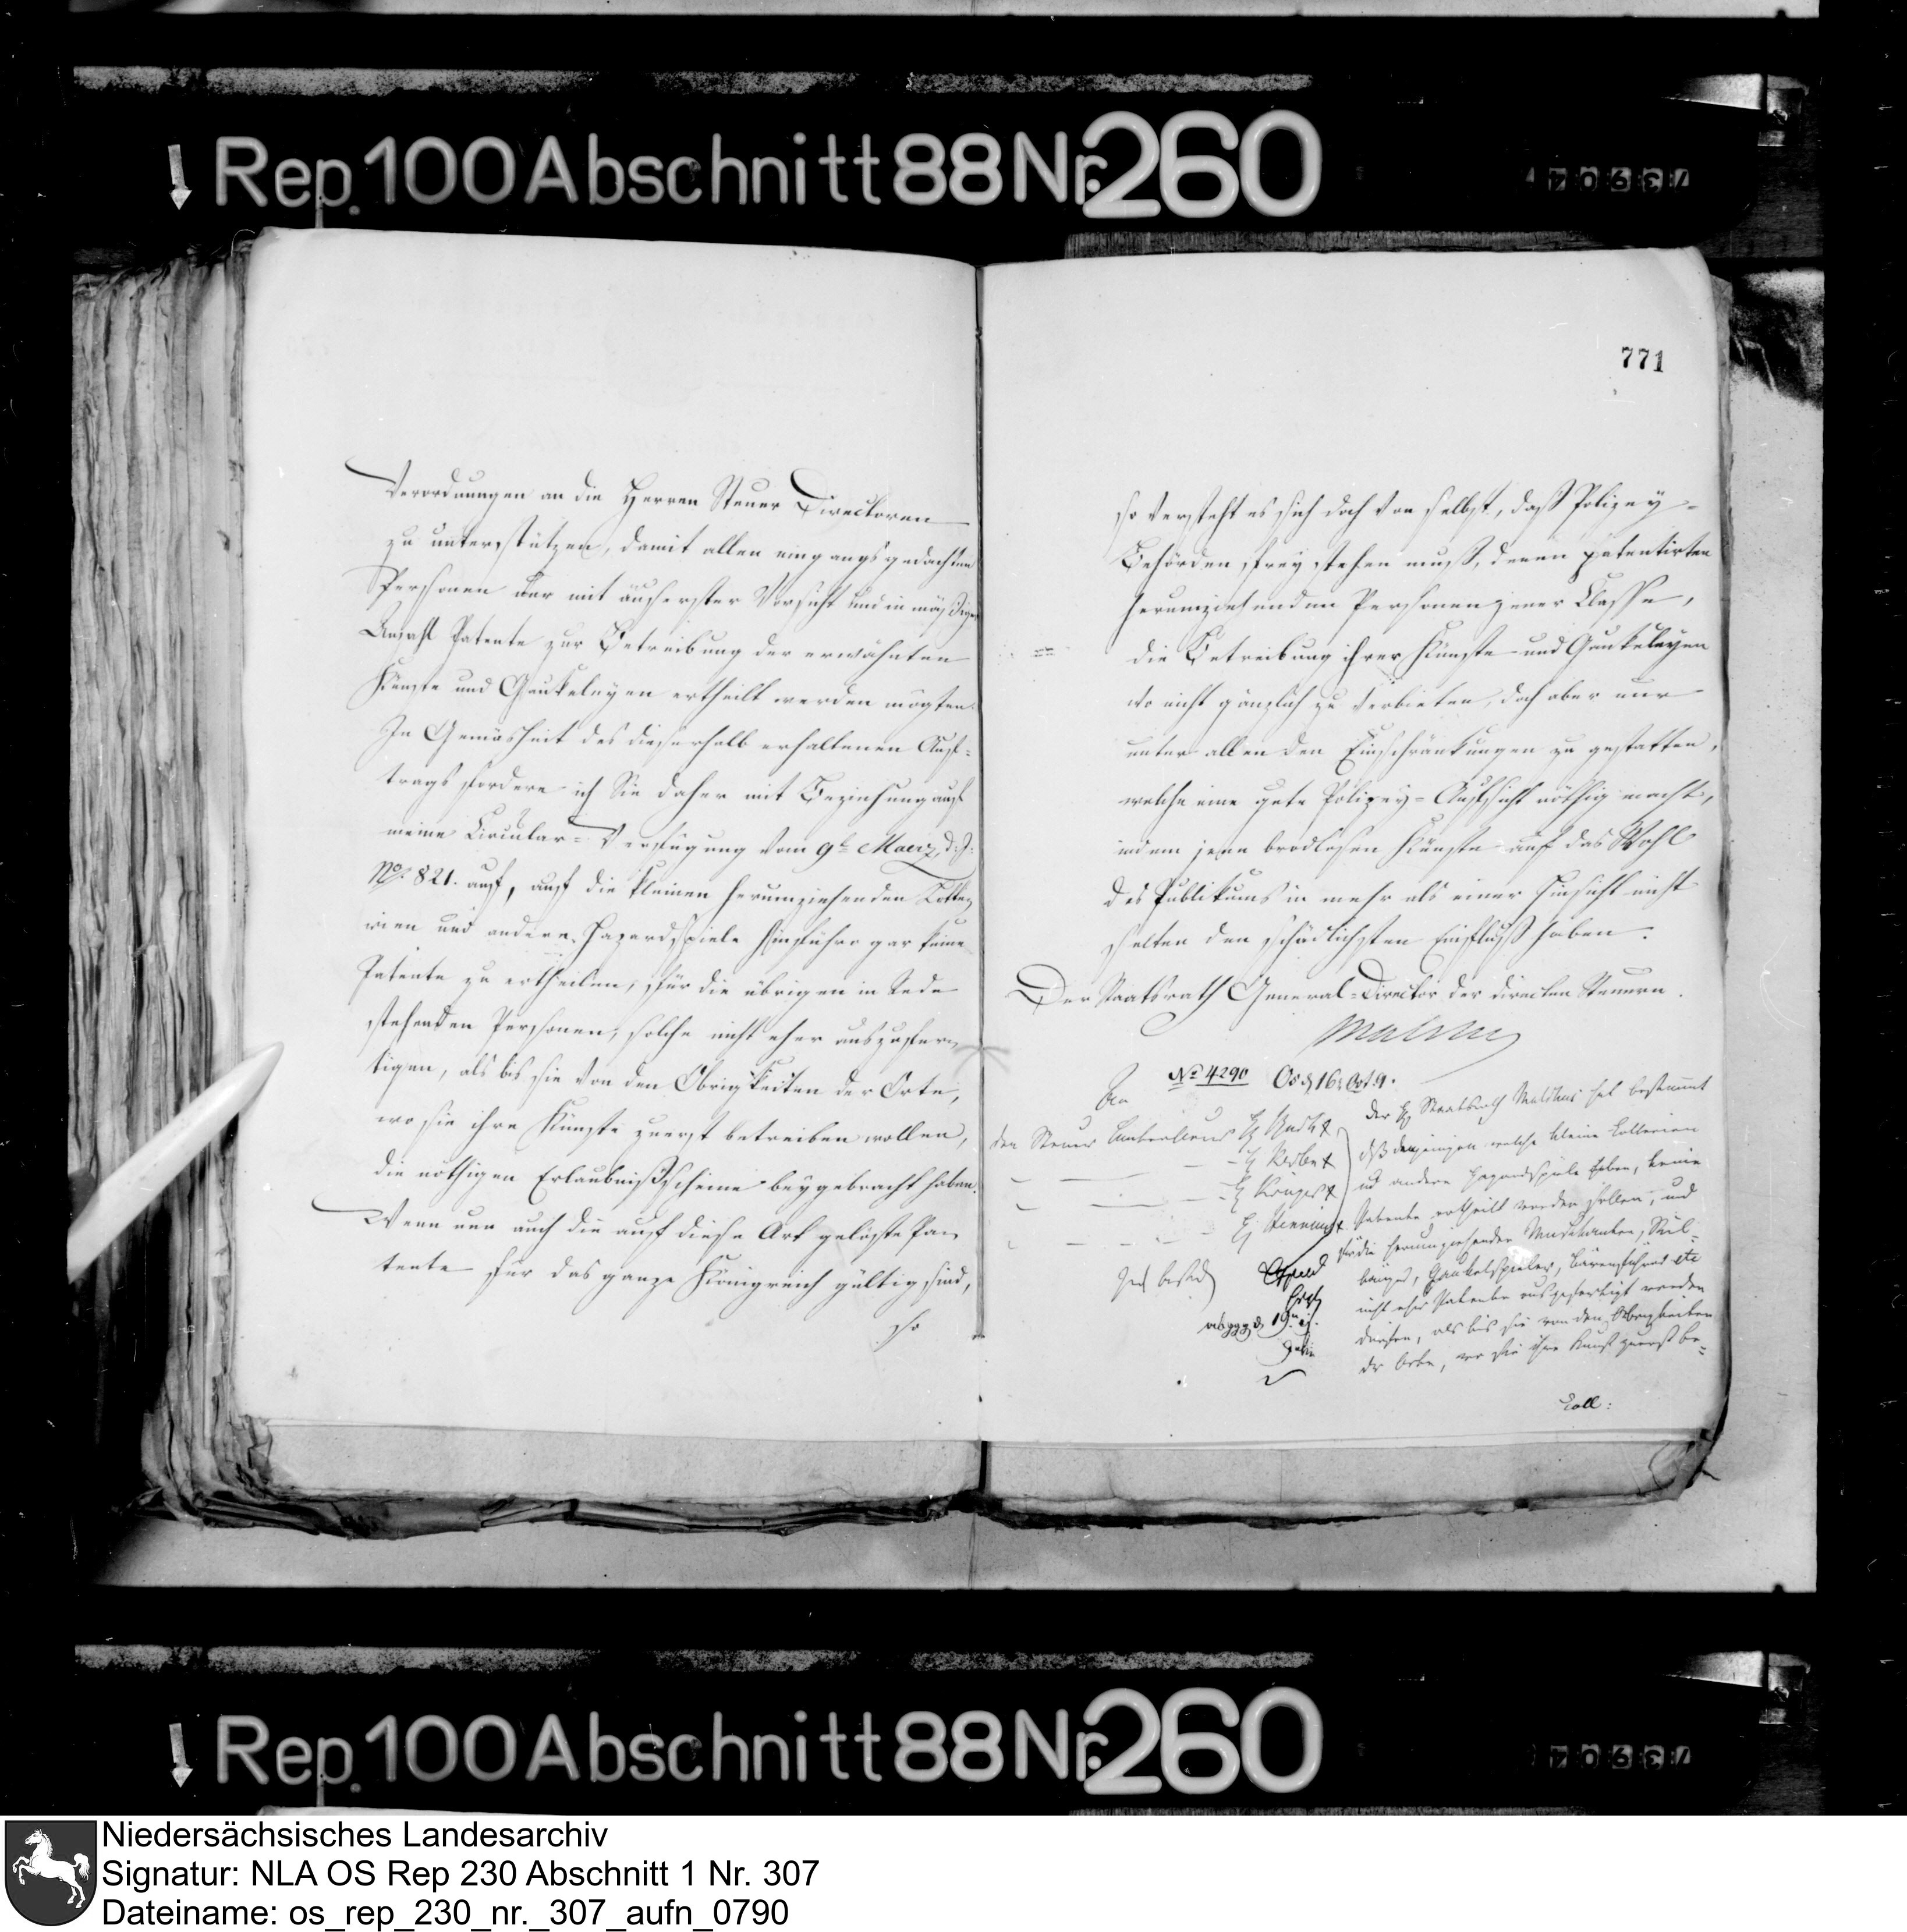 Rep. 100 Abschnitt 88 Nr. 260
Verordnungen an die Herren Steuer Directoren
zu unterstützen, damit allen eingangsgedachten
Personen nur mit äuserster Vorsicht und in mäßiger
Anzahl Patente zur Betreibung der erwähnten
Künste und Gaukeleyen ertheilt werden mögten.
In Gemäsheit des dieserhalb erhaltenen Auf-
trags fordere ich Sie daher mit Beziehung auf
meine Circular-Verfügung vom 9t Maerz d. J.
No. 821. auf, auf die kleinen herumziehenden Lotte-
rien und andere Hazardspiele hinführo gar keine
Patente zu ertheilen, für die übrigen in Rede
stehenden Personen, solche nicht eher auszufer-
tigen, als bis sie von den Obrigkeiten der Orte,
wo sie ihre Künste zuerst betreiben wollen,
die nöthigen Erlaubnißscheine beygebracht haben.
Wenn nun auch die auf diese Art gelößte Pa-
tente für das ganze Königreich gültig sind,
so
771
so versteht es sich doch von selbst, daß Polizey-
Behörden frey stehen muß, denen patentirten
herumziehenden Personen jener Classe,
die Betreibung ihrer Künste und Gaukeleyen
wo nicht gänzlich zu verbieten, doch aber nur
unter allen den Einschränkungen zu gestatten,
welche eine gute Polizey-Aufsicht nöthig macht,
indem jene brodlosen Künste auf das Wohl
des Publikums in mehr als einer Hinsicht nicht
selten den schädlichsten Einfluß haben.
Der Staatsrath General-Director der directen Steuern.
Malchus
No 4290 Os. d 16 Oct. 9.
An
den Steuer Controlleur H
H
H Kruger
H Henning
Der H Staatsrath Malchus hat bestimmt
dß denjenigen welche kleine Lotterien
und andere Hazardspiele haben, keine
Patente ertheilt werden sollen, und
für die herumziehenden Musikanten, Seil-
tänzer, Gaukelspieler, Bärenführer etc
nicht eher Patente ausgefertigt werden
dürfen, als bis sie von den Obrigkeiten
der Orte, wo sie ihre Kunst zuerst be-
19
Coll:
Rep. 100 Abschnitt 88 Nr. 260
Niedersächsisches Landesarchiv
Signatur: NLA OS Rep 230 Abschnitt 1 Nr. 307
Dateiname: os_rep_230_nr._307_aufn_0790